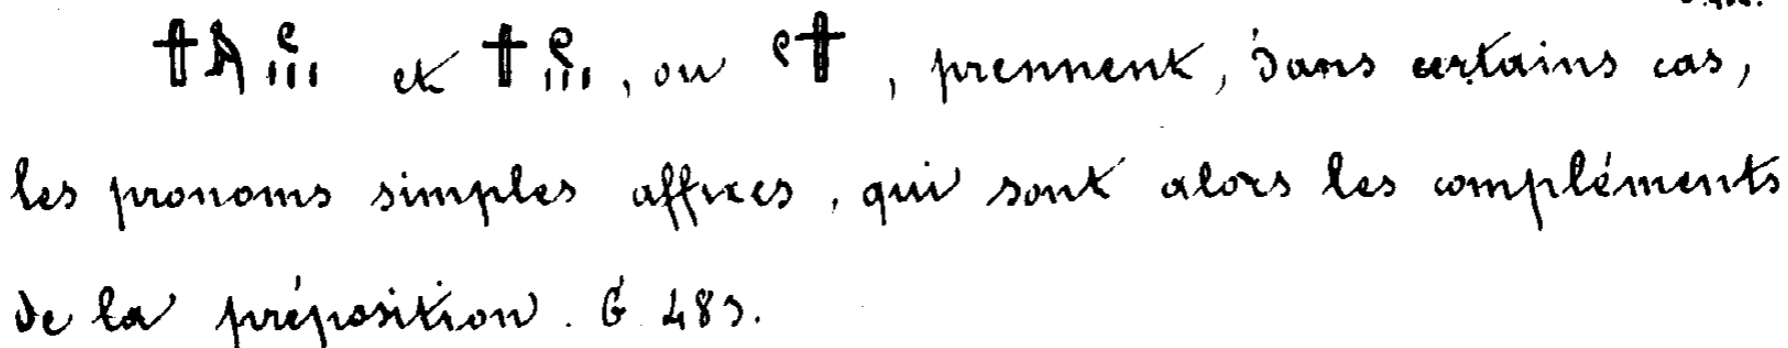 et , ou , prennent, dans certains cas,
les pronoms simples affixes, qui sont alors les compléments
de la préposition. G. 483.